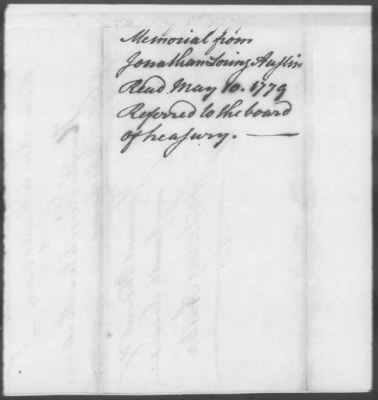 Memorial from
Jonathan Loring Austin
Read May 10. 1779
Referred to the board
of treasury. —